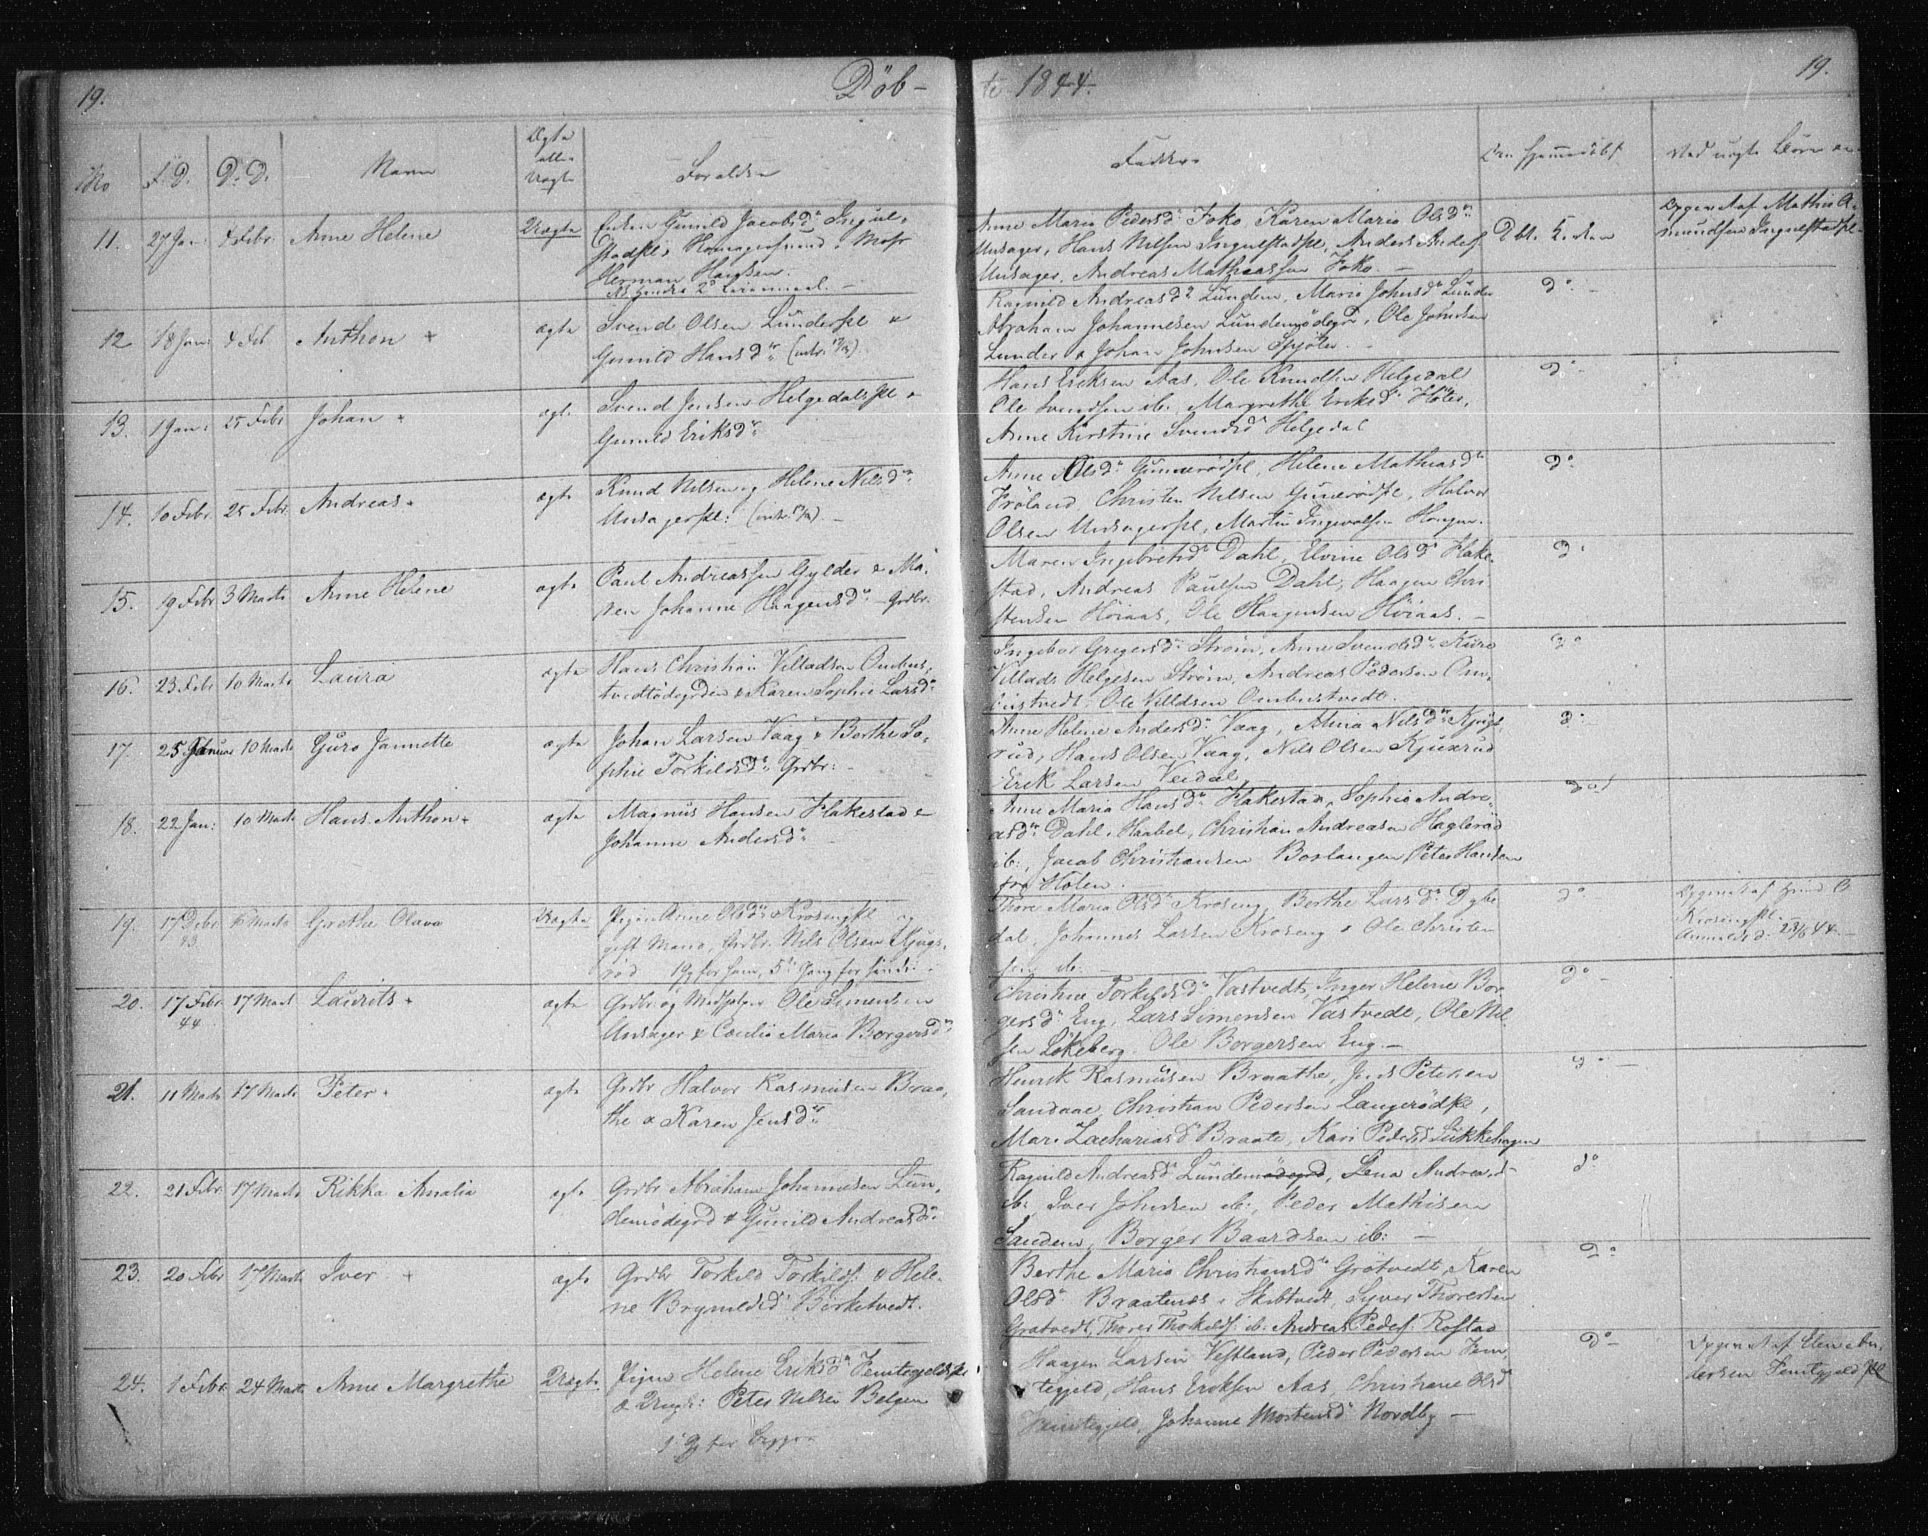 19.
Döb-
te 1844.
19.
No
F. D.
D. D.
Navn
Ægte
eller
Uægte
Forældre
Faddere
Om hjemmedöbt
Ved uægte Börn an-
11.
27 Jan:
4 Febr.
Anne Helene
Uægte
Enken Gunild Jacobsdr Ingul-
stadpl,
Herman Hansen.
Anne Maria Pedersdr Foko Karen Maria Olsdr
Unsager, Hans Nilsen Ingulstadpl, Anders Anders.
Unsager, Andreas Mathiassen Foko. —
Döbt i Kirken
Opgivet af Mathis A-
mundsen Ingulstadpl.
12
18 Jan:
4 Feb
Anthon +
ægte
Svend Olsen Lunderpl &
Gunild Hansdr
Ragnild Andreasdr Lundem, Marie Johnsdr Lunder
Abraham Johannesen Lundemödegrd, Ole Johnsen
Lunder & Johan Johnsen Spjöter. -
do -
13.
1 Jan:
25 Febr
Johan +
ægte
Svend Jensen Helgedalspl &
Gunild Eriksdr
Hans Eriksen Aas, Ole Knudsen Helgedal
Ole Svendsen ib. Margrethe Eriksdr Höter,
Anne Kirstine Svendsdr Helgedal
do -
14.
10 Febr.
25 Febr.
Andreas +
ægte
Knud Nilsen og Helene Nilsdr
Unsagerpl:
Anne Olsdr Gunnerödpl, Helene Mathiasdr
Fröland Christen Nilsen Gunerödpl, Halvor
Olsen Unsagerpl, Martin Ingevalsen Haugen.
do
15.
19 Febr
3 Marts
Anne Helene
ægte
Paul Andreassen Gylder & Ma-
ren Johanne Haagensdr Grdbr.
Maren Ingebretsdr Dahl, Elvine Olsdr Flake-
stad, Andreas Paulsen Dahl, Haagen Chri-
stensen Höiaas, Ole Haagensen Höiaas. —
do
16.
23 Febr
10 Marts
Laura
ægte
Hans Christian Villadsen Ombus-
tvedtödegrden & Karen Sophie Larsdr
Ingebor Gregersdr Ström, Anne Svendsdr Kure
Villads Helgesen Ström, Andreas Pedersen Om-
bustvedt, Ole Villdsen Ombustvedt.
do
17.
25 Januar
10 Marts
Guro Jannette
ægte
Johan Larsen Vaag & Berthe So-
phie Torkildsdr Grdbr: -
Anne Helene Andersdr Vaag, Anna Nilsdr Kjugs-
rud, Hans Olsen Vaag, Nils Olsen Kjuxrud
Erik Larsen Veidal
do
18.
22 Jan:
10 Marts
Hans Anthon +
ægte
Magnus Hansen Flakestad &
Johanne Andersdr
Anne Maria Hansdr Flakestad, Sophie Andre-
asdr Dahl, Haabel, Christian Andreasen Hagleröd
ib:, Jacob Christiansen Boslangen Peter Hansen
fra Holen.
do
19.
17 Debr
43
Grethe Olava
Uægte
Pigen Anne Olsdr Krosengpl og
gift Mand, Grdbr. Nils Olsen Kjugs-
röd 1 Gg for ham, 5te Gang for hende.
Thore Maria Olsdr Kroseng, Berthe Larsdr Dybe
dal, Johannes Larsen Kroseng & Ole Christen
sen ib. -
do
Kroseng pl.
20.
17 Febr
44
17 Marts
Laurits +
ægte
Grdbr og Medhjelper Ole Simensen
Unsager & Cæcilie Maria Borgersdr
Christine Torkildsdr Vastvedt, Inger Helene Bor
gersdr Eng, Lars Simensen Vastvedt, Ole Nil
sen Lökeberg, Ole Borgersen Eng. —
do -
21.
11 Marts
17 Marts
Peter +
ægte
Grdbr Halvor Rasmusen Braa-
the & Karen Jensdr
Henrik Rasmusen Braathe, Jens Petersen
Sandaae, Christian Pedersen Langerödpl,
Mari Zachariasdr Braate, Kari Pedersd Stikkehagen
do -
22.
21 Febr.
17 Marts
Rikka Amalia
ægte
Grdbr Abraham Johannesen Lun-
demödegrd & Gunild Andreasdr
Ragnild Andreasdr Lundemödegrd, Lena Andreasd
ib: Iver Johnsen ib:, Peder Mathisen
Sanden, Borger Baardsen ib: —
do
23.
20 Febr
17 Marts
Iver +
ægte
Grdbr Torkild Torkilds. & Hele-
ne Brynildsdr Birketvedt.
Berthe Maria Christiansdr Grötvedt, Karen
Olsdr Braatenes i Skibtvedt, Syver Thoresen
Grötvedt, Thores Thorkilds. ib: Andreas Peders. Rostad
do
24.
1 Febr
24 Marts
Anne Margrethe
Uægte
Pigen Helene Eriksdr Femtegjeldpl
& Ungk: Peter Nilsen Belgen
1ste Gg for begge
Haagen Larsen Vestland, Peder Pedersen Fem
tegjeld, Hans Eriksen Aas, Christiane Olsd
Femtegjeld, Johanne Mortensdr Nordby —
do -
Opgivet af Elen An-
dersen Femtegjeld pl